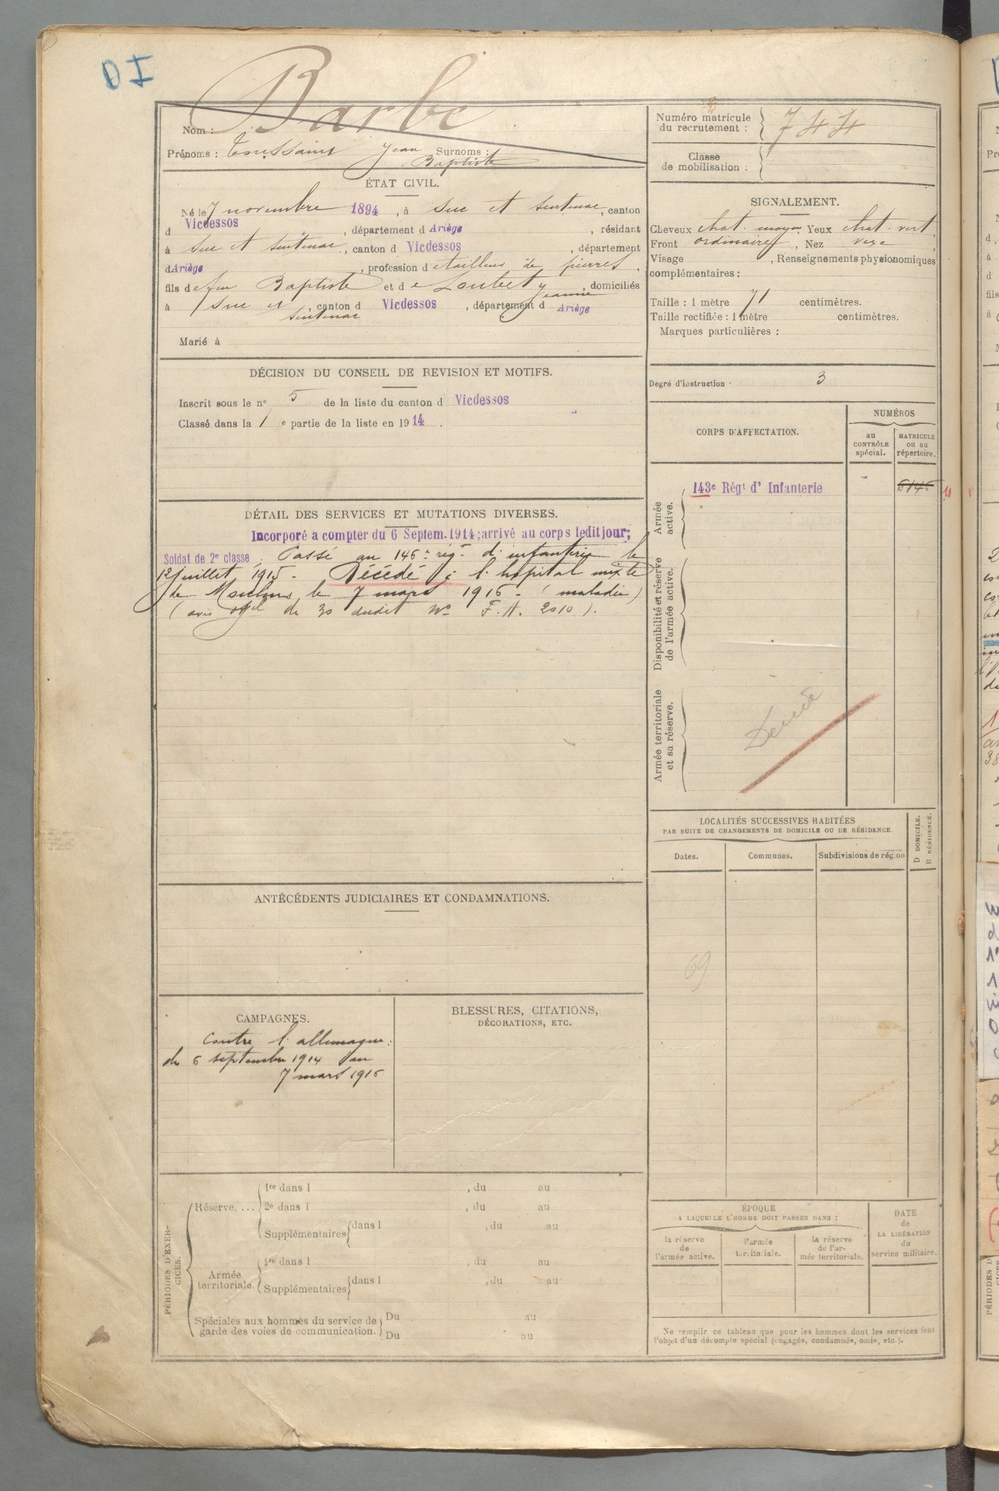 DI
Nom : Barbe
Prénoms : Toussaint Jean Surnoms :
Baptiste
ÉTAT CIVIL.
Né le 7 novembre 1894, à Suc et Sentenac, canton
d Vicdessos, département d Ariège, résidant
à Suc et Sentenac, canton d Vicdessos, département
d Ariège, profession de tailleur de pierres,
fils de feu Baptiste et de Loubet Jeanne, domiciliés
à Suc et Sentenac, canton d Vicdessos, département d Ariège
Marié à
DÉCISION DU CONSEIL DE REVISION ET MOTIFS.
Inscrit sous le n° 5 de la liste du canton d Vicdessos
Classé dans la 1 e partie de la liste en 1914.
DÉTAIL DES SERVICES ET MUTATIONS DIVERSES.
Incorporé a compter du 6 Septem. 1914; arrivé au corps leditjour;
Soldat de 2e classe. Passé au 146e rég. d'infanterie le
12 juillet 1915. Décédé à l'hôpital mixte
de Moulins le 7 mars 1916. (maladie)
(avis du 30 dudit N° F.A. 2010).
ANTÉCÉDENTS JUDICIAIRES ET CONDAMNATIONS.
CAMPAGNES.
Contre l'allemagne:
du 6 septembre 1914 au
7 mars 1916
BLESSURES, CITATIONS,
DÉCORATIONS, ETC.
PÉRIODES D'EXERCICES.
Réserve. ...
1re dans l , du au
2e dans l , du au
Supplémentaires dans l , du au
Armée territoriale.
1re dans l , du au
Supplémentaires dans l , du au
Spéciales aux hommes du service de
garde des voies de communication.
Du au
Du au
Numéro matricule
du recrutement : 744
Classe
de mobilisation :
SIGNALEMENT.
Cheveux chat. moyen Yeux chat. vert
Front ordinaire, Nez vexe
Visage , Renseignements physionomiques
complémentaires :
Taille : 1 mètre 71 centimètres.
Taille rectifiée : 1 mètre centimètres.
Marques particulières :
Degré d'instruction · 3
CORPS D'AFFECTATION.
NUMÉROS
au
CONTRÔLE
spécial.
MATRICULE
ou au
répertoire.
Armée
active.
143e Régt d' Infanterie
Disponibilité et réserve
de l'armée active.
Armée territoriale
et sa réserve.
LOCALITÉS SUCCESSIVES HABITÉES
PAR SUITE DE CHANGEMENTS DE DOMICILE OU DE RÉSIDENCE.
Dates.
Communes.
Subdivisions de région
D DOMICILE.
R RÉSIDENCE.
69
ÉPOQUE
A LAQUELLE L'HOMME DOIT PASSER DANS :
la réserve
de
l'armée active.
l'armée
territoriale.
la réserve
de l'ar-
mée territoriale.
DATE
de
LA LIBÉRATION
du
service militaire.
Ne remplir ce tableau que pour les hommes dont les services font
l'objet d'un décompte spécial (engagés, condamnés, omis, etc.).